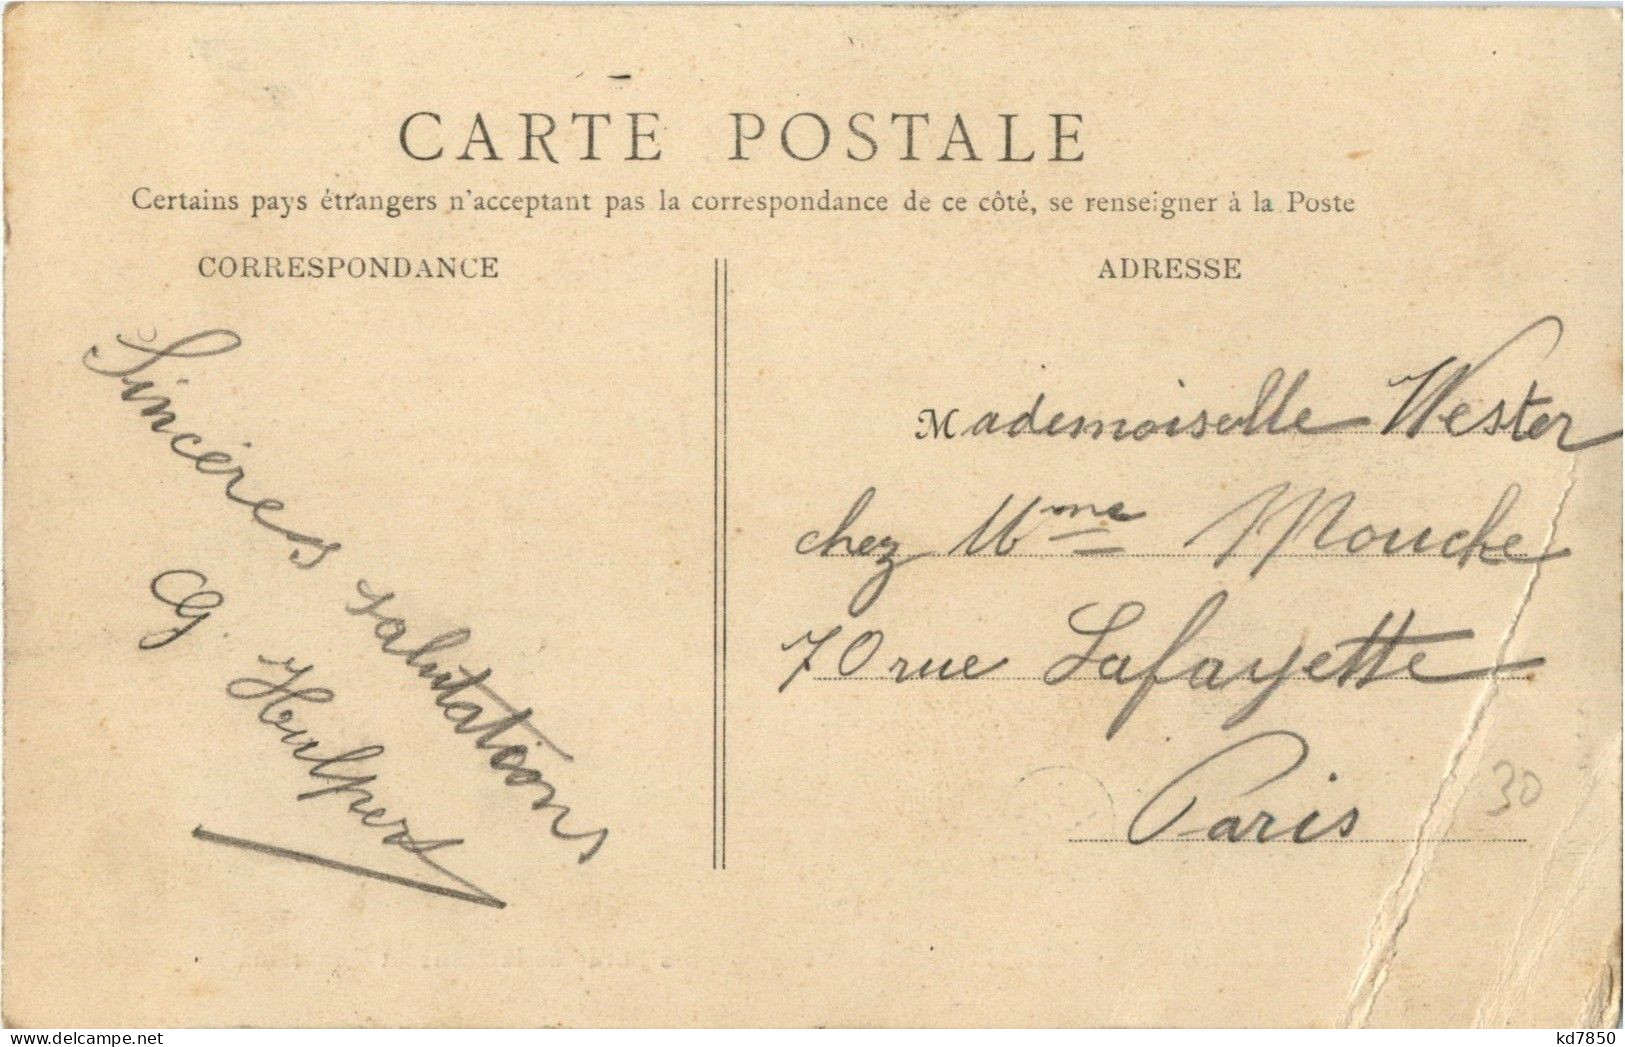 CARTE POSTALE
Certains pays étrangers n'acceptant pas la correspondance de ce côté, se renseigner à la Poste
CORRESPONDANCE
Sincères salutations
G. Houlpert
ADRESSE
Mademoiselle Wester
chez Mme Mouche
70 rue Lafayette
Paris
30
delcampe.net
kd7850